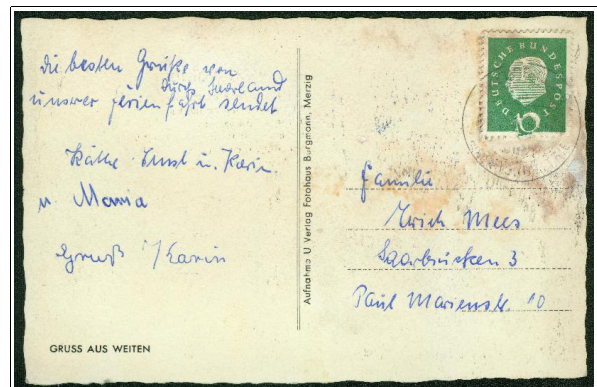 die besten Grüße von
durch Saarland
unserer Ferienfahrt sendet
Käthe Ernst u. Karin
u. Maria
Gruß Karin
GRUSS AUS WEITEN
Aufnahme U Verlag Fotohaus Burgmann, Merzig
DEUTSCHE BUNDESPOST
10
Familie
Erich Mees
Saarbrücken 3
Paul Marienstr. 10